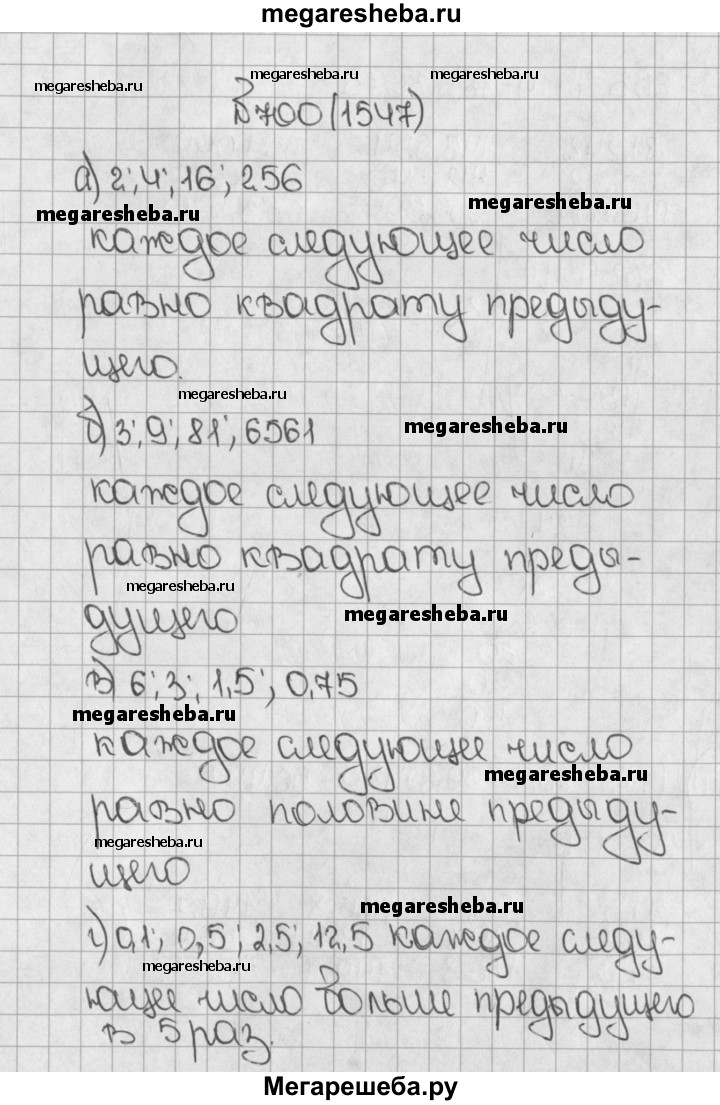 megaresheba.ru
megaresheba.ru megaresheba.ru megaresheba.ru
№700(1547)
а) 2; 4; 16; 256
megaresheba.ru megaresheba.ru
каждое следующее число
равно квадрату предыду-
щего.
megaresheba.ru
б) 3; 9; 81; 6561
megaresheba.ru
каждое следующее число
равно квадрату преды-
megaresheba.ru
дущего
megaresheba.ru
в) 6; 3; 1,5; 0,75
megaresheba.ru
каждое следующее число
megaresheba.ru
равно половине предыду-
megaresheba.ru
щего
megaresheba.ru
г) 0,1; 0,5; 2,5; 12,5 каждое следу-
megaresheba.ru
ющее число больше предыдущего
в 5 раз.
Мегарешеба.ру